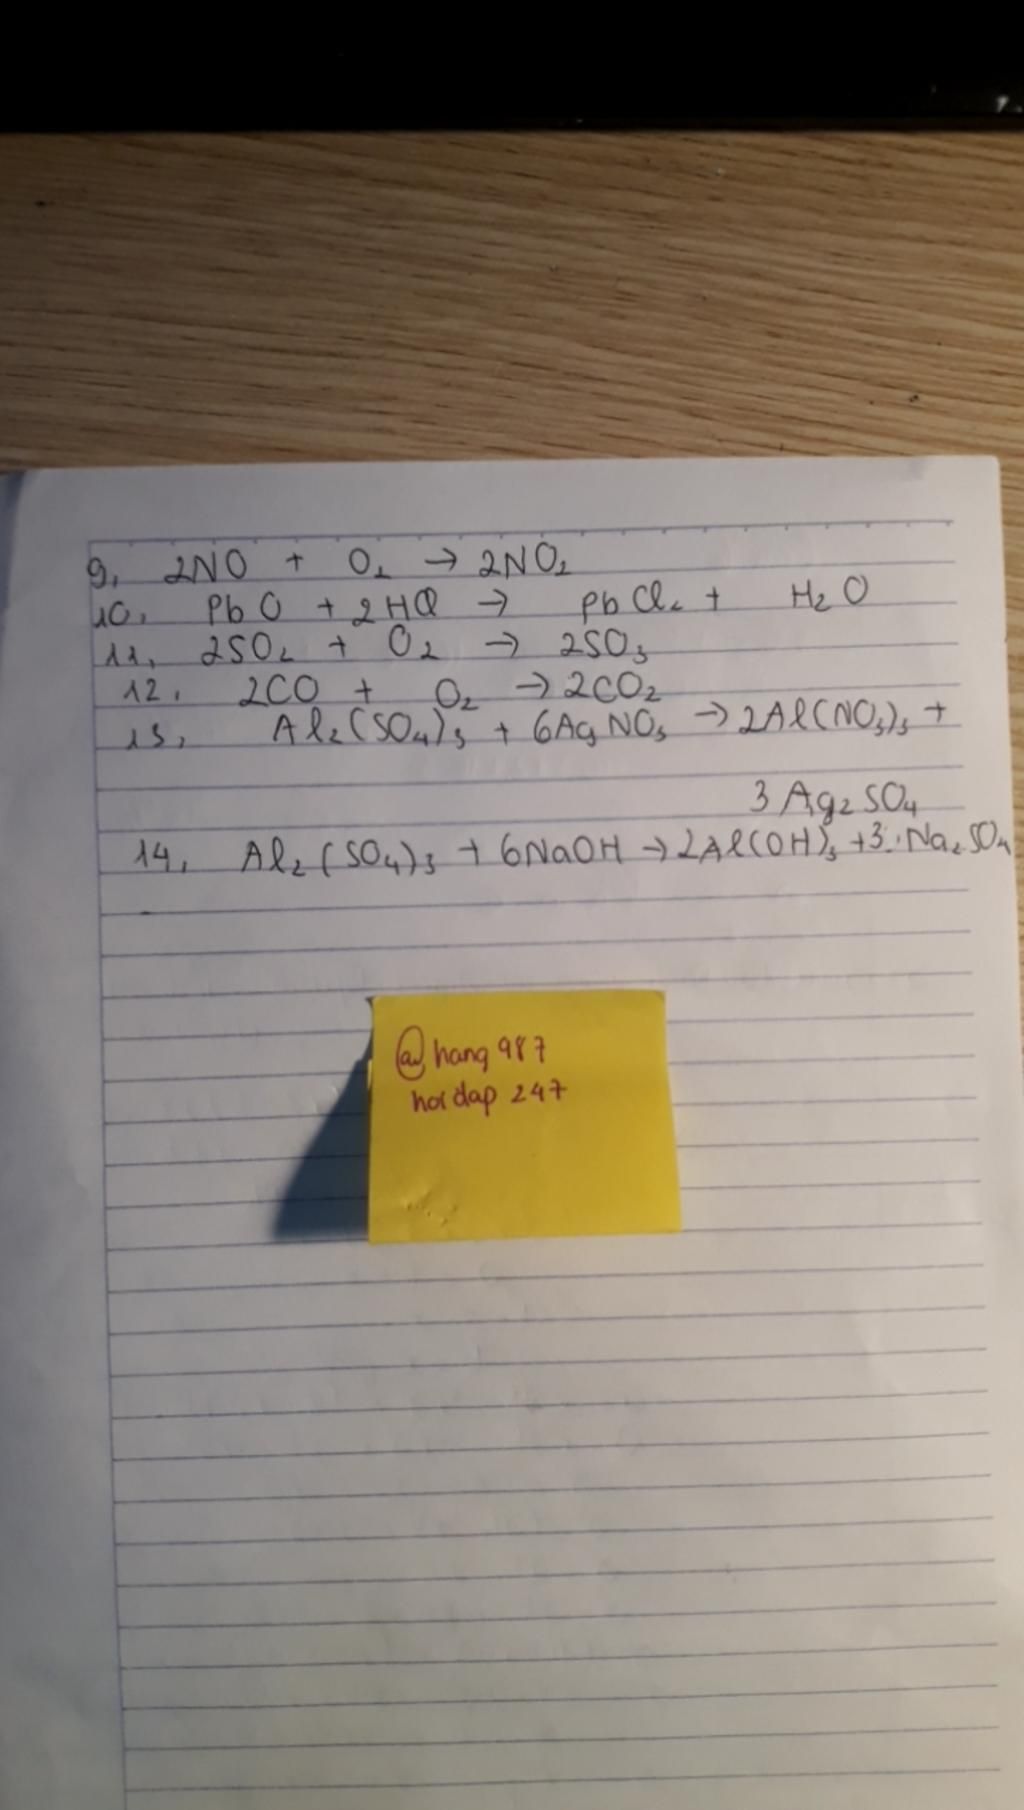 9, 2NO + O₂ → 2NO₂
10, PbO + 2HCl → PbCl₂ + H₂O
11, 2SO₂ + O₂ → 2SO₃
12, 2CO + O₂ → 2CO₂
13, Al₂(SO₄)₃ + 6AgNO₃ → 2Al(NO₃)₃ +
3Ag₂SO₄
14, Al₂(SO₄)₃ + 6NaOH → 2Al(OH)₃ + 3Na₂SO₄
@hang987
hoidap 247